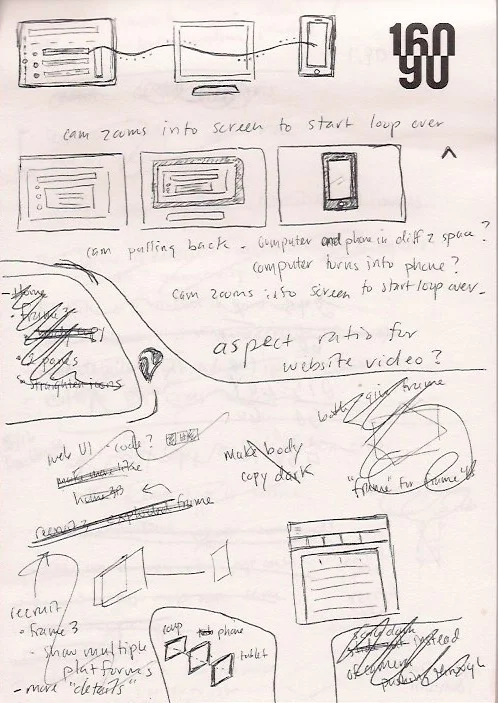 160
90
cam zooms into screen to start loop over
cam pulling back - computer and phone in diff z space?
computer turns into phone?
cam zooms into screen to start loop over
- Home
- frame 3
- 2 pages
- straighten icons
aspect ratio for
website video?
both give frame
web UI - code?
make body
copy dark
make more like
home
"frame" for frame
recruit 3 - exploded frame
recruit
- frame 3
- show multiple
platforms
- more "details"
comp
phone
tablet
instead
of camera
pushing through